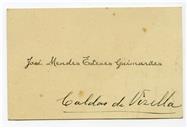 José Mendes Esteves Guimarães
Caldas de Vizella